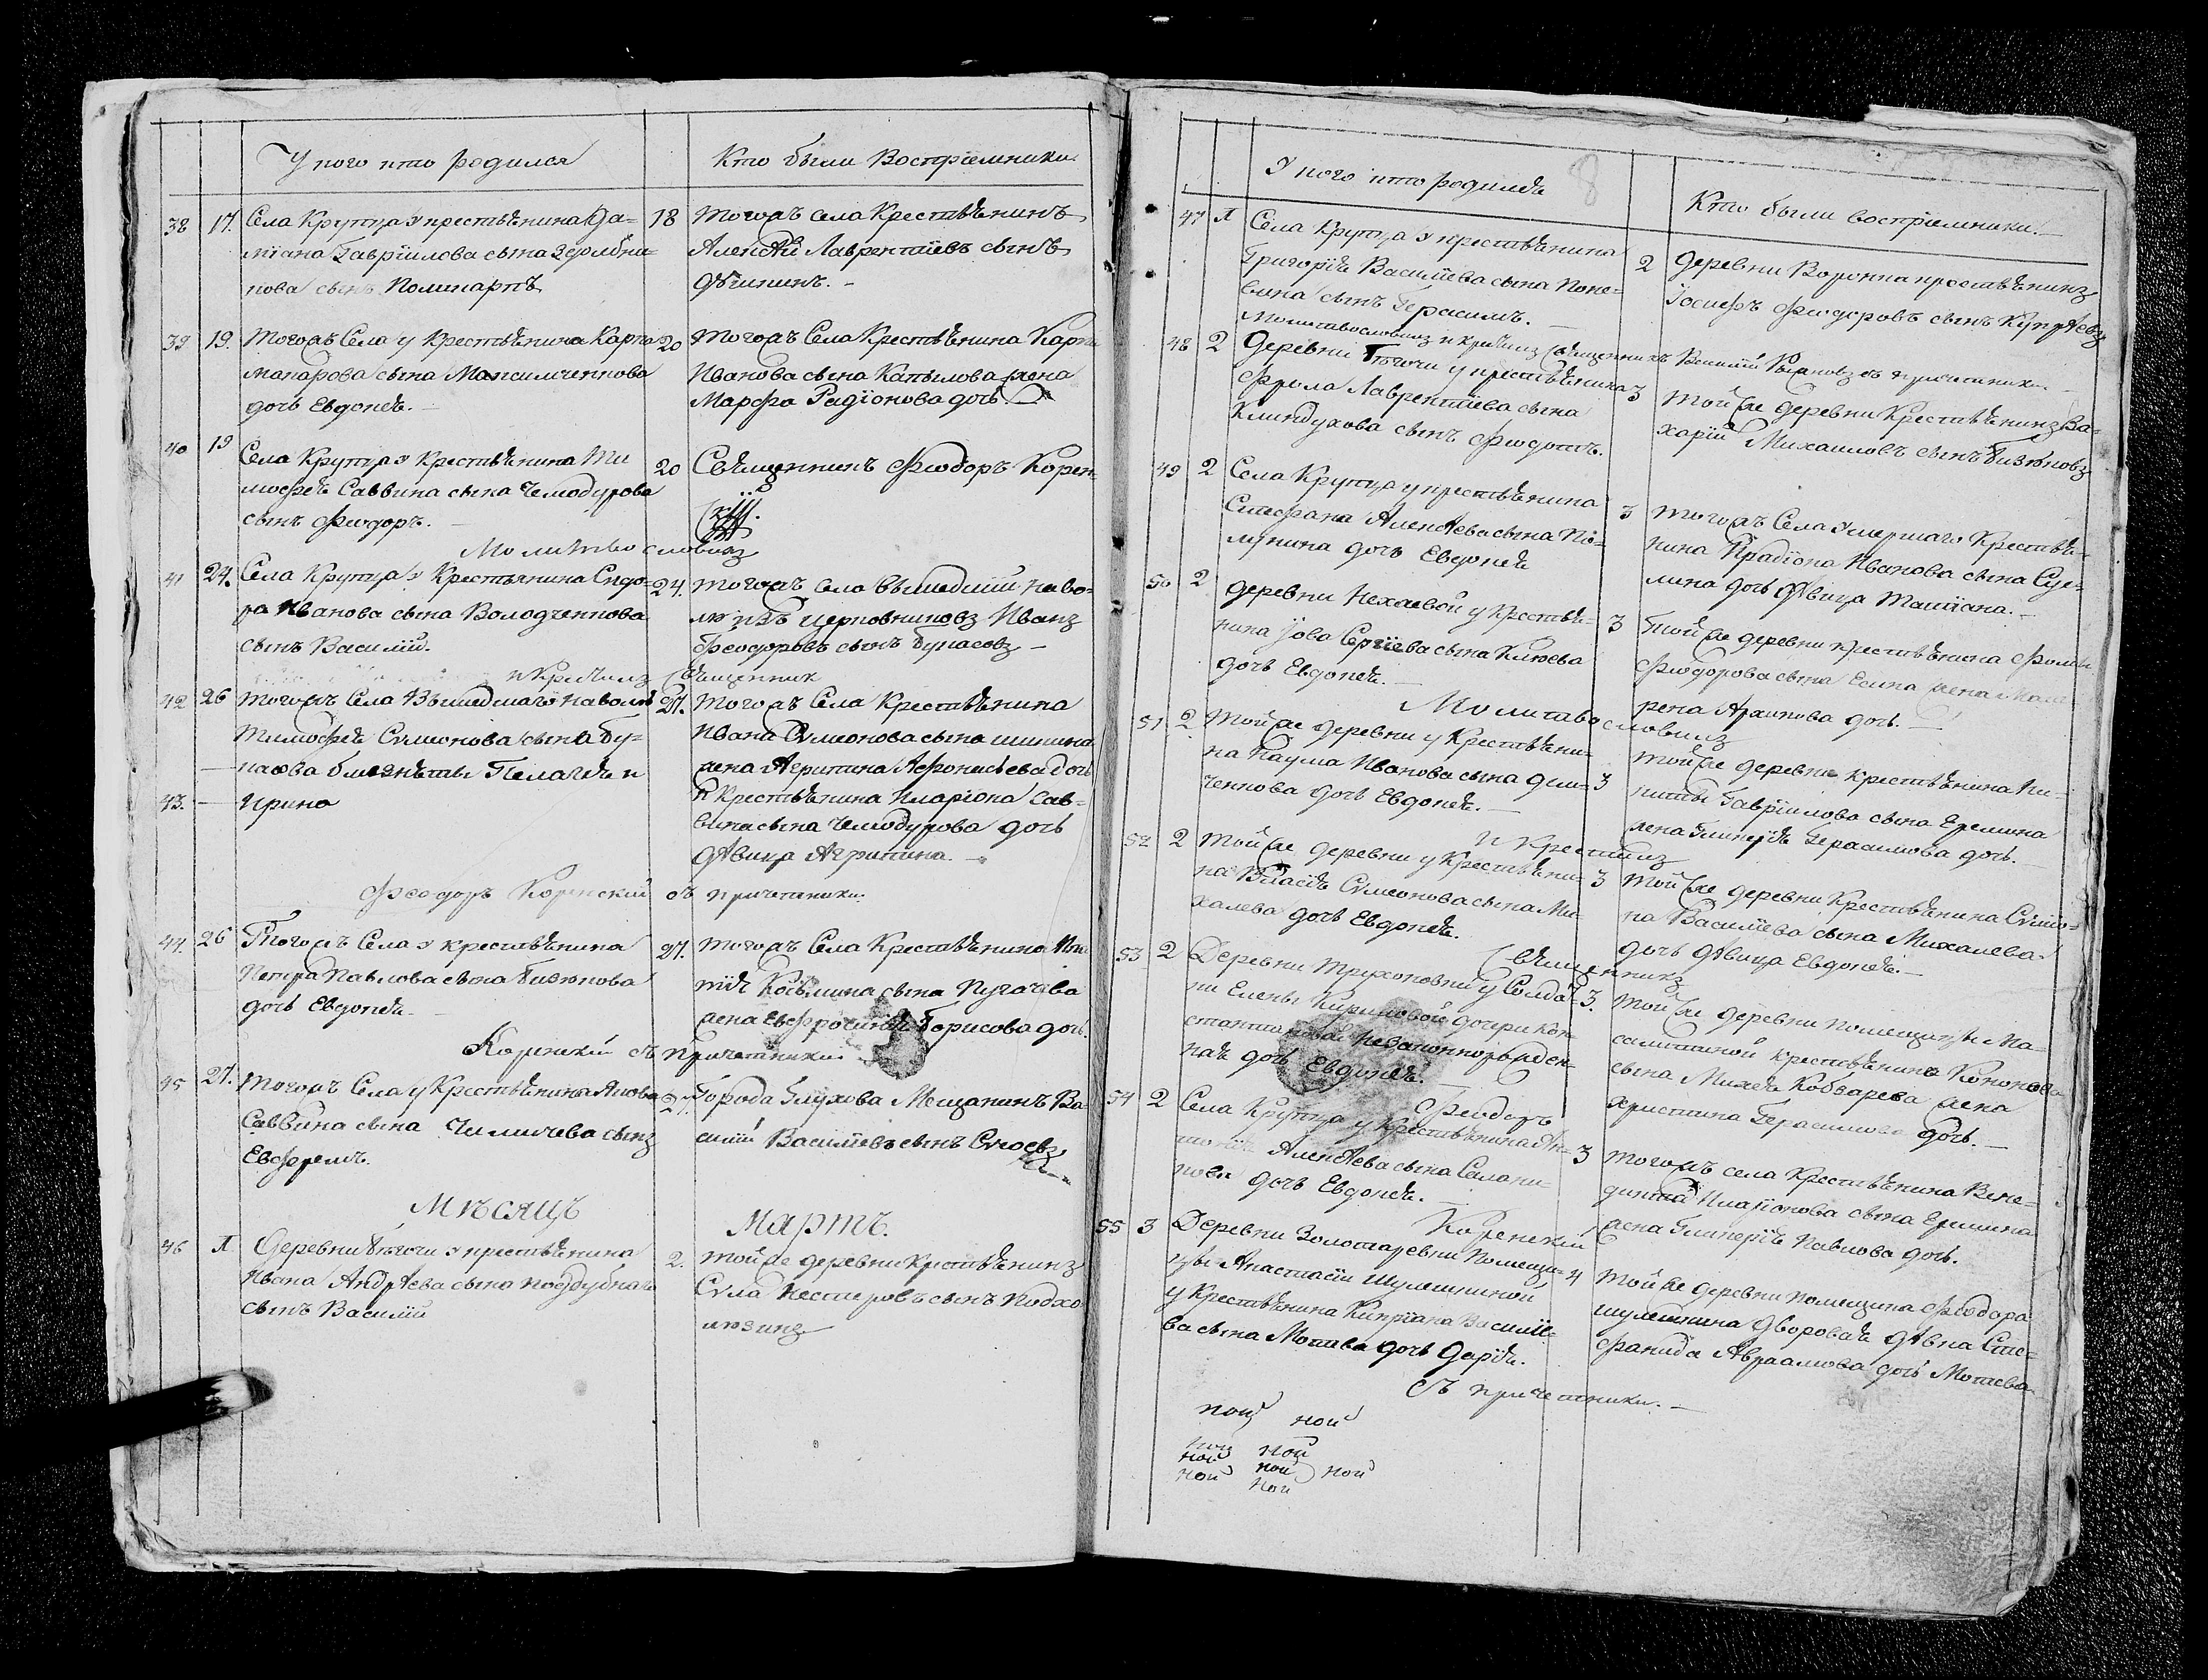 У кого кто родился
Кто были Восприемники
38 17. Села Крупца у крестьянина Да-
мiана Гаврiилова сына
сынъ Поликарпъ
18 тогожъ села Крестьянинъ
Алексѣй Лаврентiевъ сынъ
39 19. тогожъ Села у Крестьянина Карпа
макарова сына Максимченкова
дочь Евдокiя.
20 тогожъ Села Крестьянина Карпа
Иванова сына Капылова жена
Марфа Радiонова дочь
40 19 Села Крупца у Крестьянина Ти
мофея Саввина сына Чемодурова
сынъ Фиодоръ.
20 Священникъ Фиодоръ Корен-
скiй.
Молитвословилъ
41 24. Села Крупца у Крестьянина Сидо-
ра Иванова сына Володченкова
сынъ Василiй.
24. тогожъ Села вышедшiй на во-
лю изъ церковниковъ Иванъ
Феодоровъ сынъ Булгаковъ
и Крестилъ Священник
42 26 тогожъ Села вышедшаго на волю
Тимофея Сѵмеонова сына Бу-
43. гакова близнецы Пелагiя и
Ирина
27. тогожъ Села Крестьянина
Ивана Сѵмеонова сына шишкина
жена Агрипина Афонасьева дочь
и Крестьянина Илариона Сав-
вина сына Чемодурова дочь
дѣвица Агрипина.
Феодоръ Коренскiй съ причетники.
44. 26 Тогожъ Села у крестьянина
Петра Павлова сына Бизюкова
дочь Евдокiя
27. тогожъ Села Крестьянина
Козьмина сына Пугачева
жена Евфросинiя Борисова дочь.
Коренскiй съ Причетники
45 27. тогожъ Села у Крестьянина Якова
Саввина сына Чиличева сынъ
Евфремъ.
27. Города Глухова Мещанинъ Ва-
силiй Васильевъ сынъ Сысоевъ
Мѣсяцъ Мартъ.
46 1 Деревни у крестьянина
Ивана Андрѣева сына поддубнаго
сынъ Василiй
2. тойже деревни Крестьянинъ
Сила Нестеровъ сынъ Подхо
люзинъ
8
У кого кто родился
Кто были восприемники.
47 1 Села Крупца у крестьянина
Григорiя Васильева сына Поне-
вина сынъ Герасимъ.
2 деревни Воронка крестьянинъ
Iосифъ Фиодоровъ сынъ Купрѣевъ
Молитвословилъ и крестилъ Священникъ Василiй съ причетники.
48 2 Деревни у крестьянина
Фрола Лаврентiева сына
Клиндухова сынъ Фиодотъ.
3 тойже деревни Крестьянинъ За-
харiй Михаиловъ сынъ Бизюковъ
49 2 Села Крупца у крестьянина
Стефана Алексѣева сына По-
лунина дочь Евдокiя
3 тогожъ Села умершаго Крестья-
нина Иродiона Иванова сына Суе-
лина дочь дѣвица Татiана.
50 2 деревни Нехаевой у Крестья-
нина Iова Сергiева сына Клюева
дочь Евдокiя.
3 тойже деревни крестьянина
Фиодорова сына Есина жена
рена Архипова дочь.
Молитвословилъ
51. 2 тойже деревни у Крестьяни-
на Наума Иванова сына Дем-
ченкова дочь Евдокiя.
3 тойже деревни крестьянина Ни-
киты Гаврiилова сына Еремина
жена Гликерiя Герасимова дочь.
и Крестилъ
52 2 тойже деревни у Крестьяни-
на Власiя Сѵмеонова сына Ми-
халева дочь Евдокiя.
3 тойже деревни Крестьянина Сѵмео-
на Васильева сына Михалева
дочь дѣвица Евдокiя.
Священникъ
53 2 Деревни Трухоновки у Солдат-
ки Елены Кириловой дочери Кон-
стантиновой незаконнорожден-
ная дочь Евдокiя.
3. тойже деревни помещицы Ма-
салитиной крестьянина Кононова
сына Михея Кобзарева жена
христина Герасимова дочь.
Фиодоръ
54 2 Села Крупца у Крестьянина Ан-
Алексѣева сына Салани-
кова дочь Евдокiя.
3 тогожъ села Крестьянина Вене-
дикта Иларiонова сына Еремина
жена Гликерiя Павлова дочь.
Коренскiй
55 3 Деревни Золотаревки Помещи-
цы Анастасiи Шулешкиной
у Крестьянина Кипрiана Василiе-
ва сына Мотаева дочь Дарiя.
4 тойже деревни помещика Фиодора
шулешкина дворовая дѣвка Сте-
фанида Авраамова дочь Мотаева
съ причетники.
ной ной
ной ной
ной ной
ной ной ной
ной